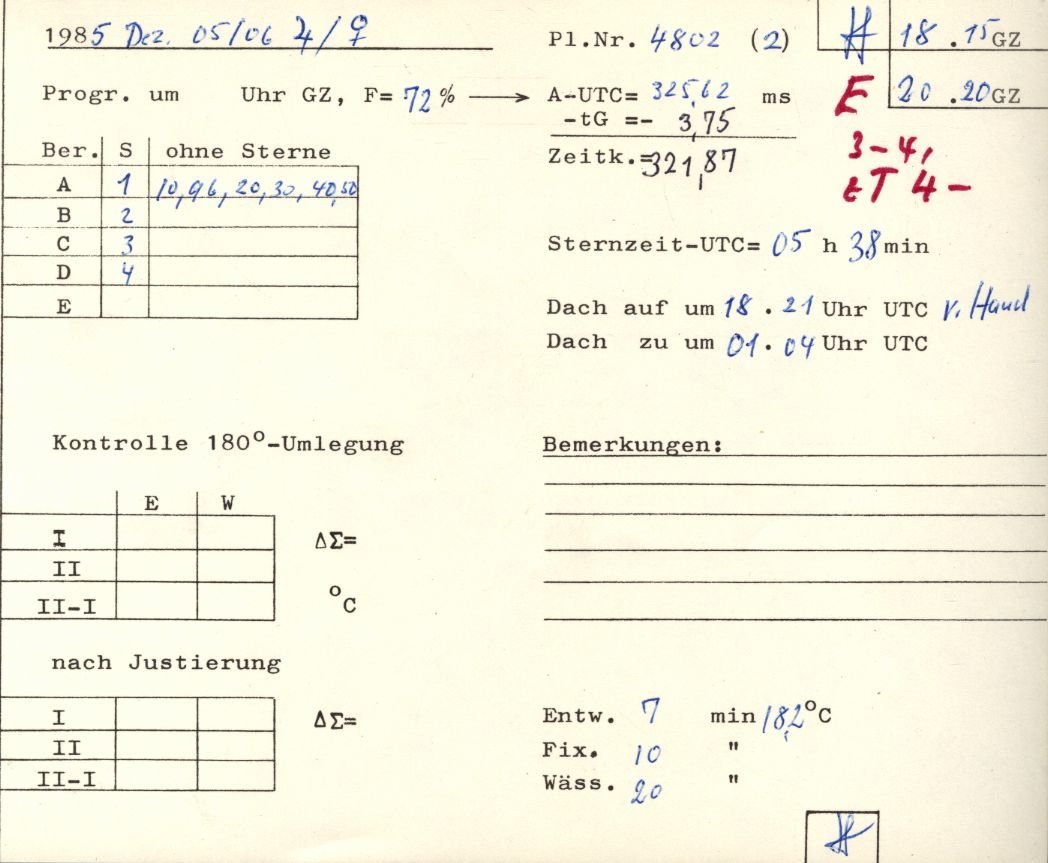 1985 Dez. 05/06 ♃/♀
Pl.Nr. 4802 (2)
18.15GZ
Progr. um Uhr GZ, F= 72% → A-UTC= 325,62 ms
E 20.20GZ
-tG =- 3,75
Ber. S ohne Sterne
Zeitk.=321,87
3-4,
tT 4-
A 1 10,96,20,30,40,50
B 2
C 3
D 4
E
Sternzeit-UTC= 05 h 38min
Dach auf um 18.21 Uhr UTC v. Hand
Dach zu um 01.04 Uhr UTC
Kontrolle 180°-Umlegung
Bemerkungen:
E W
I ΔΣ=
II
II-I °C
nach Justierung
I ΔΣ=
II
II-I
Entw. 7 min 18,2°C
Fix. 10 "
Wäss. 20 "